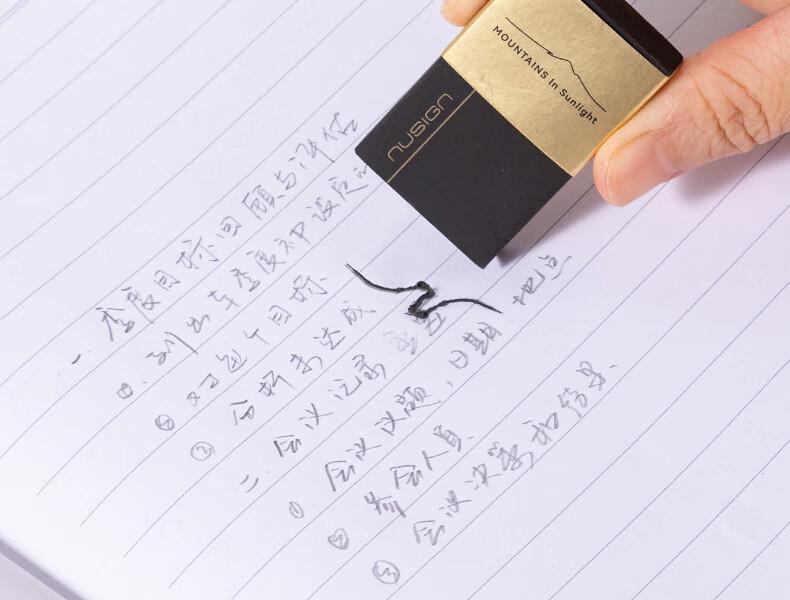 MOUNTAINS In Sunlight
NUSIGN
一. 季度目标回顾与评估
①. 列出本季度初设定
② 对每个目标
② 分析未达成
二 会议记录
① 会议议题、日期、地点
② 参会人员.
③ 会议决策和结果.